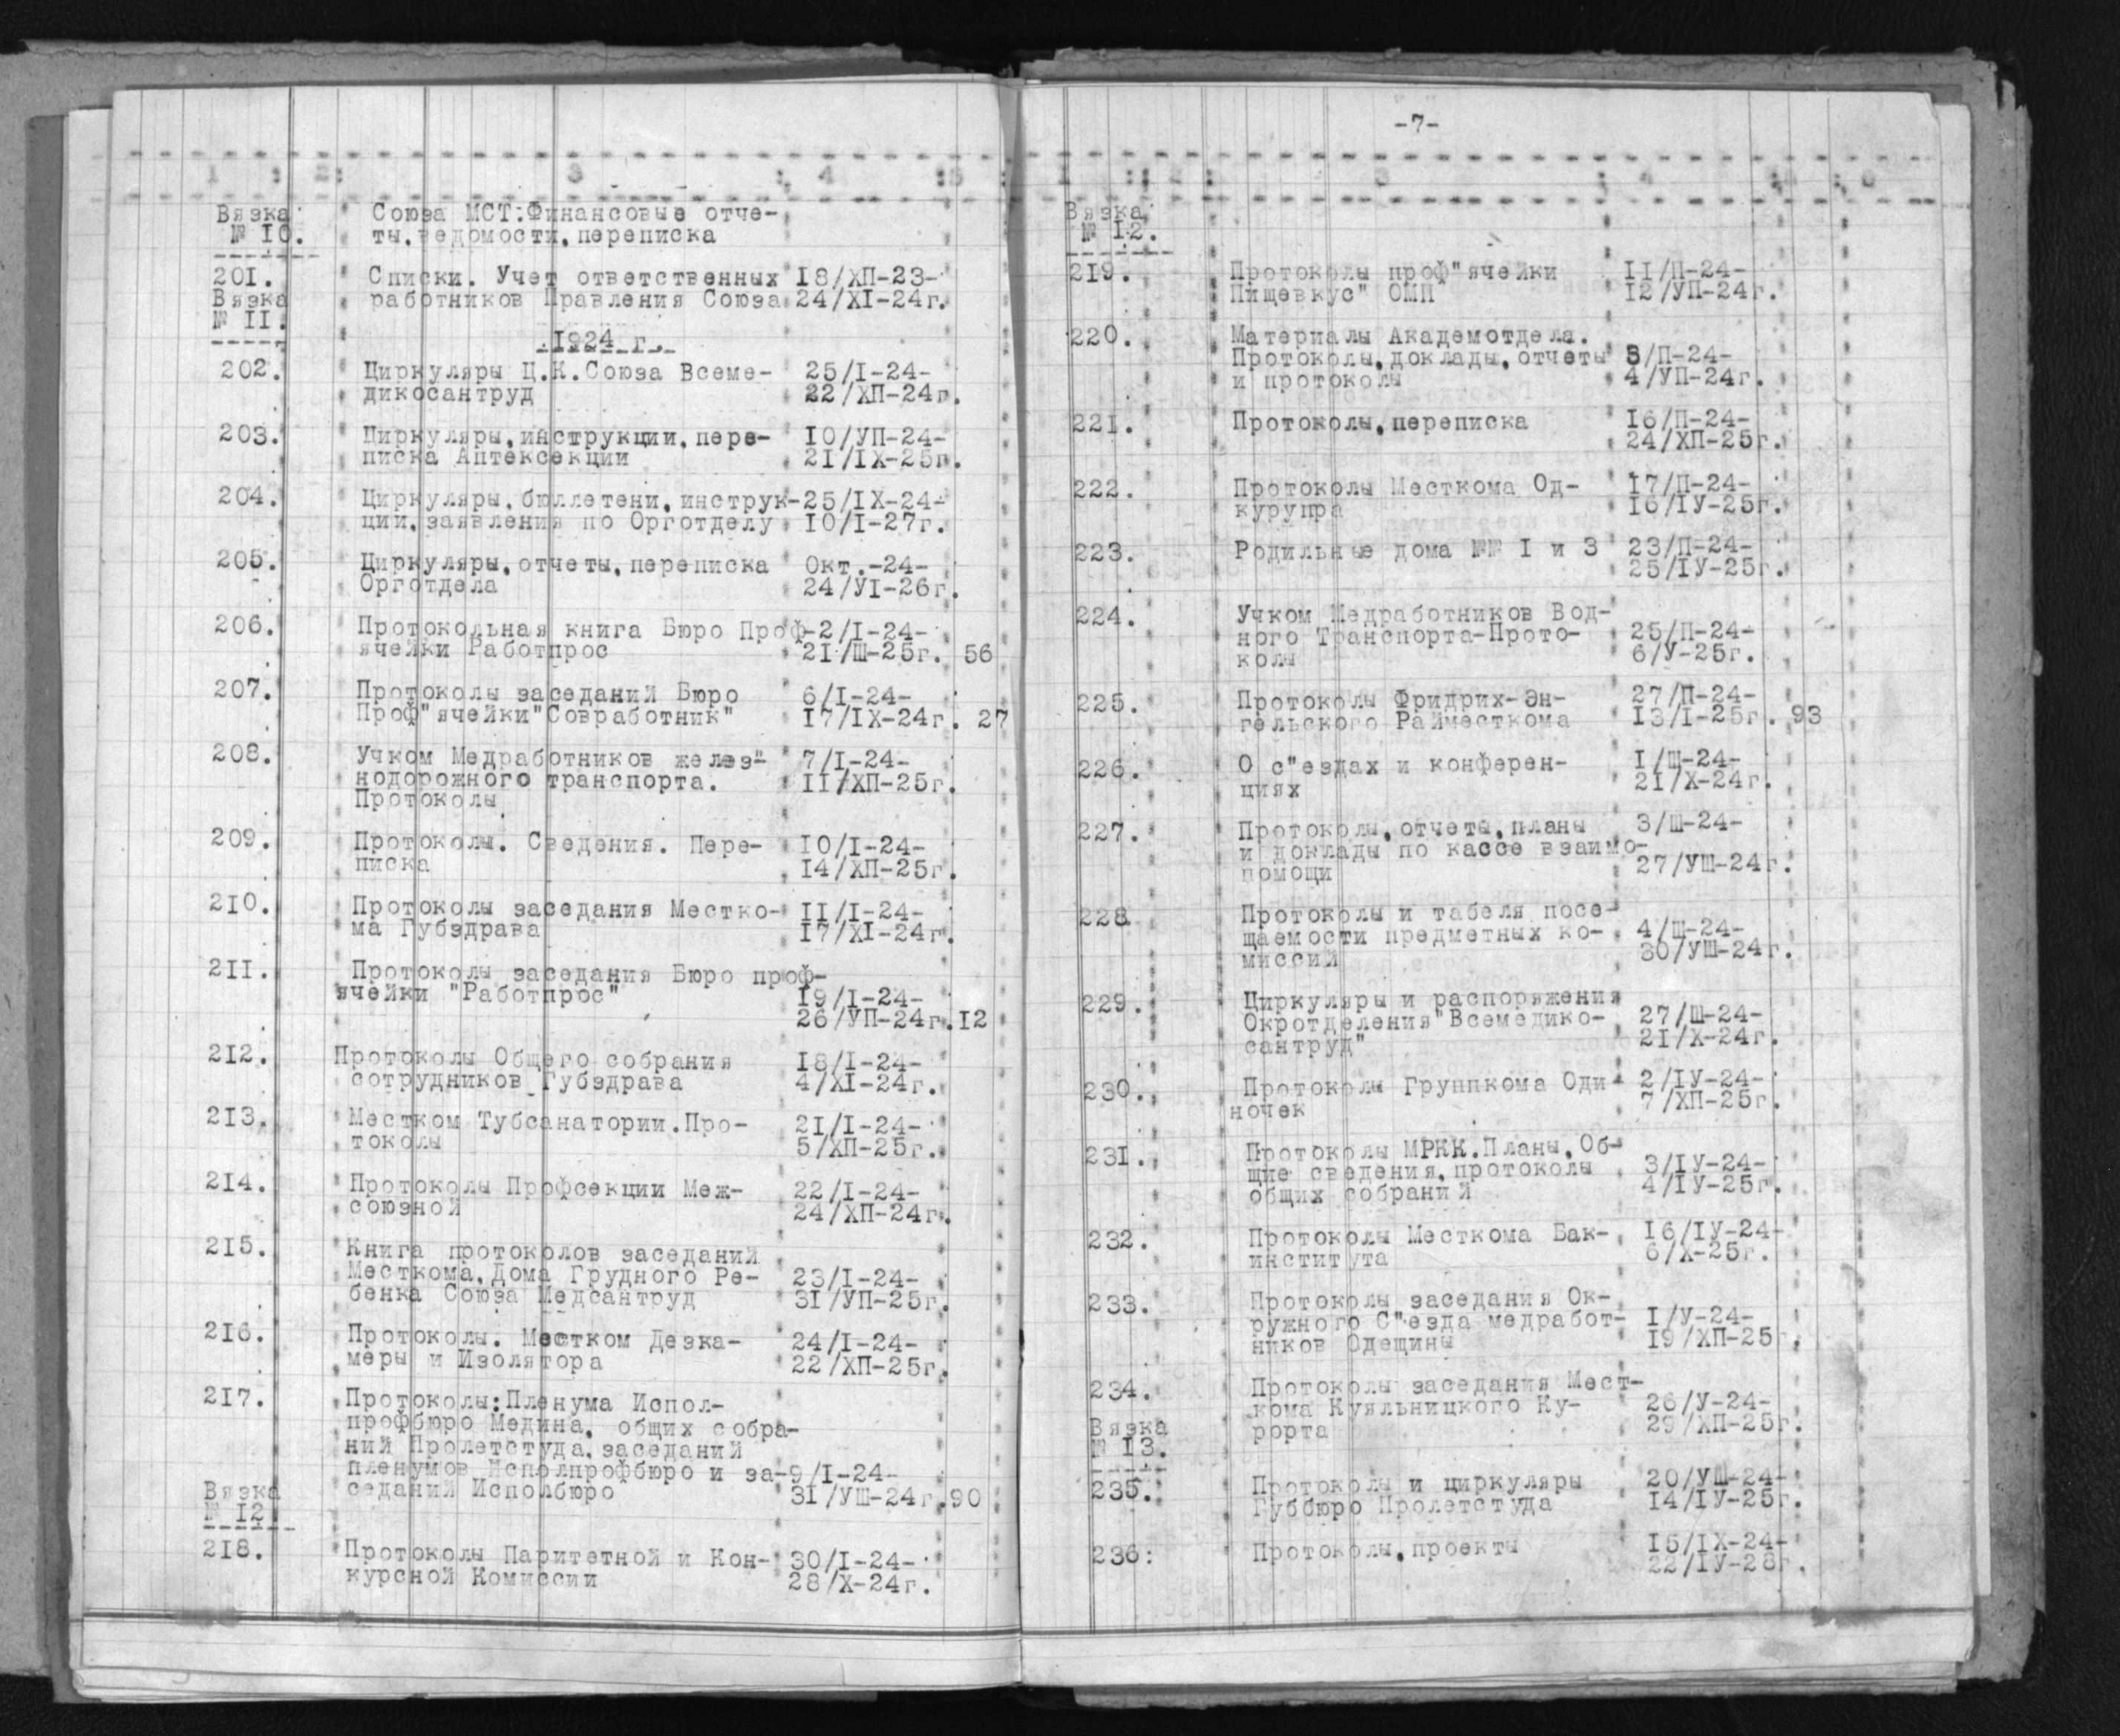 1 : 2 : 3 : 4 : 5
Вязка
№ 10.
Союза МСТ:Финансовые отче-
ты,ведомости,переписка
201. Списки. Учет ответственных 18/ХП-23-
Вязка работников Правления Союза 24/XI-24г.
№ II.
1924 г.
202. Циркуляры Ц.К.Союза Всеме- 25/I-24-
дикосантруд 22/ХП-24г.
203. Циркуляры,инструкции,пере- 10/УП-24-
писка Аптексекции 21/IX-25г.
204. Циркуляры,бюллетени,инструк-25/IX-24-
ции,заявления по Орготделу 10/I-27г.
205. Циркуляры,отчеты,переписка Окт.-24-
Орготдела 24/УI-26г.
206. Протокольная книга Бюро Проф-2/I-24-
ячейки Работпрос 21/Ш-25г. 56
207. Протоколы заседаний Бюро 6/I-24-
Проф"ячейки"Совработник" 17/IX-24г. 27
208. Учком Медработников желез"- 7/I-24-
нодорожного транспорта. II/ХП-25г.
Протоколы
209. Протоколы. Сведения. Пере- 10/I-24-
писка 14/ХП-25г.
210. Протоколы заседания Местко- II/I-24-
ма Губздрава 17/XI-24г.
211. Протоколы заседания Бюро проф-
ячейки "Работпрос" 19/I-24-
26/УП-24г.12
212. Протоколы Общего собрания 18/I-24-
сотрудников Губздрава 4/XI-24г.
213. Местком Тубсанатории.Про- 21/I-24-
токолы 5/ХП-25г.
214. Протоколы Профсекции Меж- 22/I-24-
союзной 24/ХП-24г.
215. Книга протоколов заседаний
Месткома,Дома Грудного Ре- 23/I-24-
бенка Союза Медсантруд 31/УП-25г.
216. Протоколы. Местком Дезка- 24/I-24-
меры и Изолятора 22/ХП-25г.
217. Протоколы:Пленума Испол-
профбюро Медина, общих собра-
ний Пролетстуда,заседаний
пленумов Исполпрофбюро и за-9/I-24-
Вязка седаний Исполбюро 31/УШ-24г.90
№ 12
218. Протоколы Паритетной и Кон- 30/I-24-
курсной Комиссии 28/X-24г.
-7-
Вязка
№ 12.
219. Протоколы проф"ячейки II/П-24-
Пищевкус" ОМП 12/УП-24г.
220. Материалы Академотдела.
Протоколы,доклады,отчеты 8/П-24-
и протоколы 4/УП-24г.
221. Протоколы,переписка 16/П-24-
24/ХП-25г.
222. Протоколы Месткома Од- 17/П-24-
курупра 16/IУ-25г.
223. Родильные дома №№ I и 3 23/П-24-
25/IУ-25г.
224. Учком Медработников Вод-
ного Транспорта-Прото- 25/П-24-
колы 6/У-25г.
225. Протоколы Фридрих-Эн- 27/П-24-
гельского Райместкома 13/I-25г. 93
226. О с"ездах и конферен- I/Ш-24-
циях 21/X-24г.
227. Протоколы,отчеты,планы 3/Ш-24-
и доклады по кассе взаимо-
помощи 27/УШ-24г.
228 Протоколы и табеля посе-
щаемости предметных ко- 4/Ш-24-
миссий 30/УШ-24г.
229. Циркуляры и распоряжения
Окротделения"Всемедико- 27/Ш-24-
сантруд" 21/X-24г.
230. Протоколы Группкома Оди- 2/IУ-24-
ночек 7/ХП-25г.
231. Протоколы МРКК.Планы.Об-
щие сведения,протоколы 3/IУ-24-
общих собраний 4/IУ-25г.
232. Протоколы Месткома Бак- 16/IУ-24-
института 6/X-25г.
233. Протоколы заседания Ок-
ружного С"езда медработ- I/У-24-
ников Одещины 19/ХП-25г.
234. Протоколы заседания Мест-
кома Куяльницкого Ку- 26/У-24-
Вязка рорта 29/ХП-25г.
№ 13.
235. Протоколы и циркуляры 20/УШ-24-
Губбюро Пролетстуда 14/IУ-25г.
236: Протоколы,проекты 15/IX-24-
22/IУ-28г.